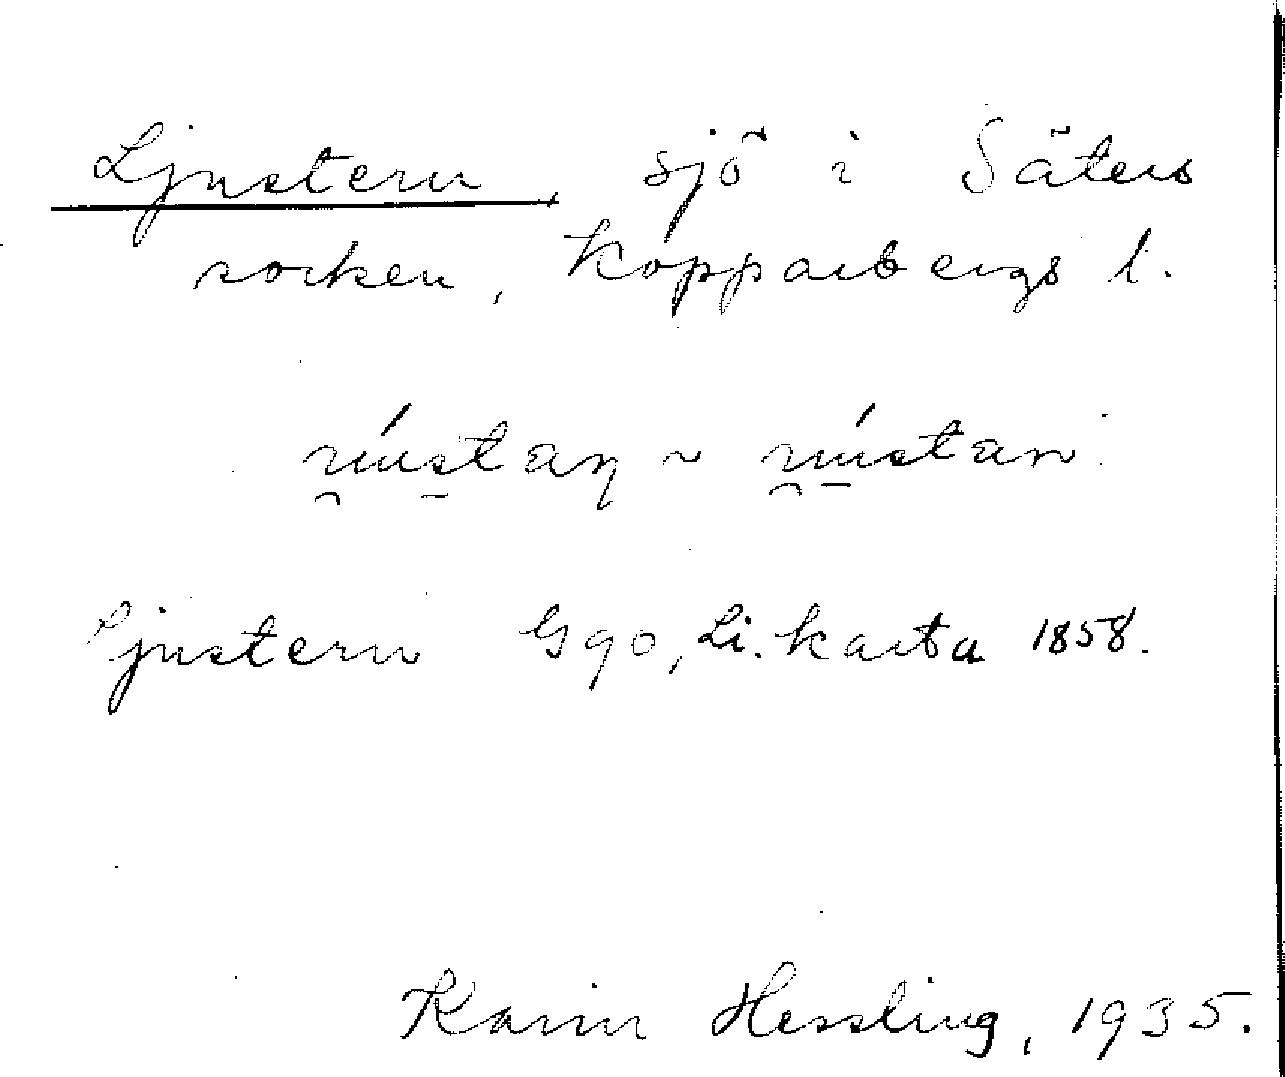 Ljustern, sjö i Säters
socken, Kopparbergs l.
~
Ljustern G90, Li. karta 1858.
Karin Hessling, 1935.